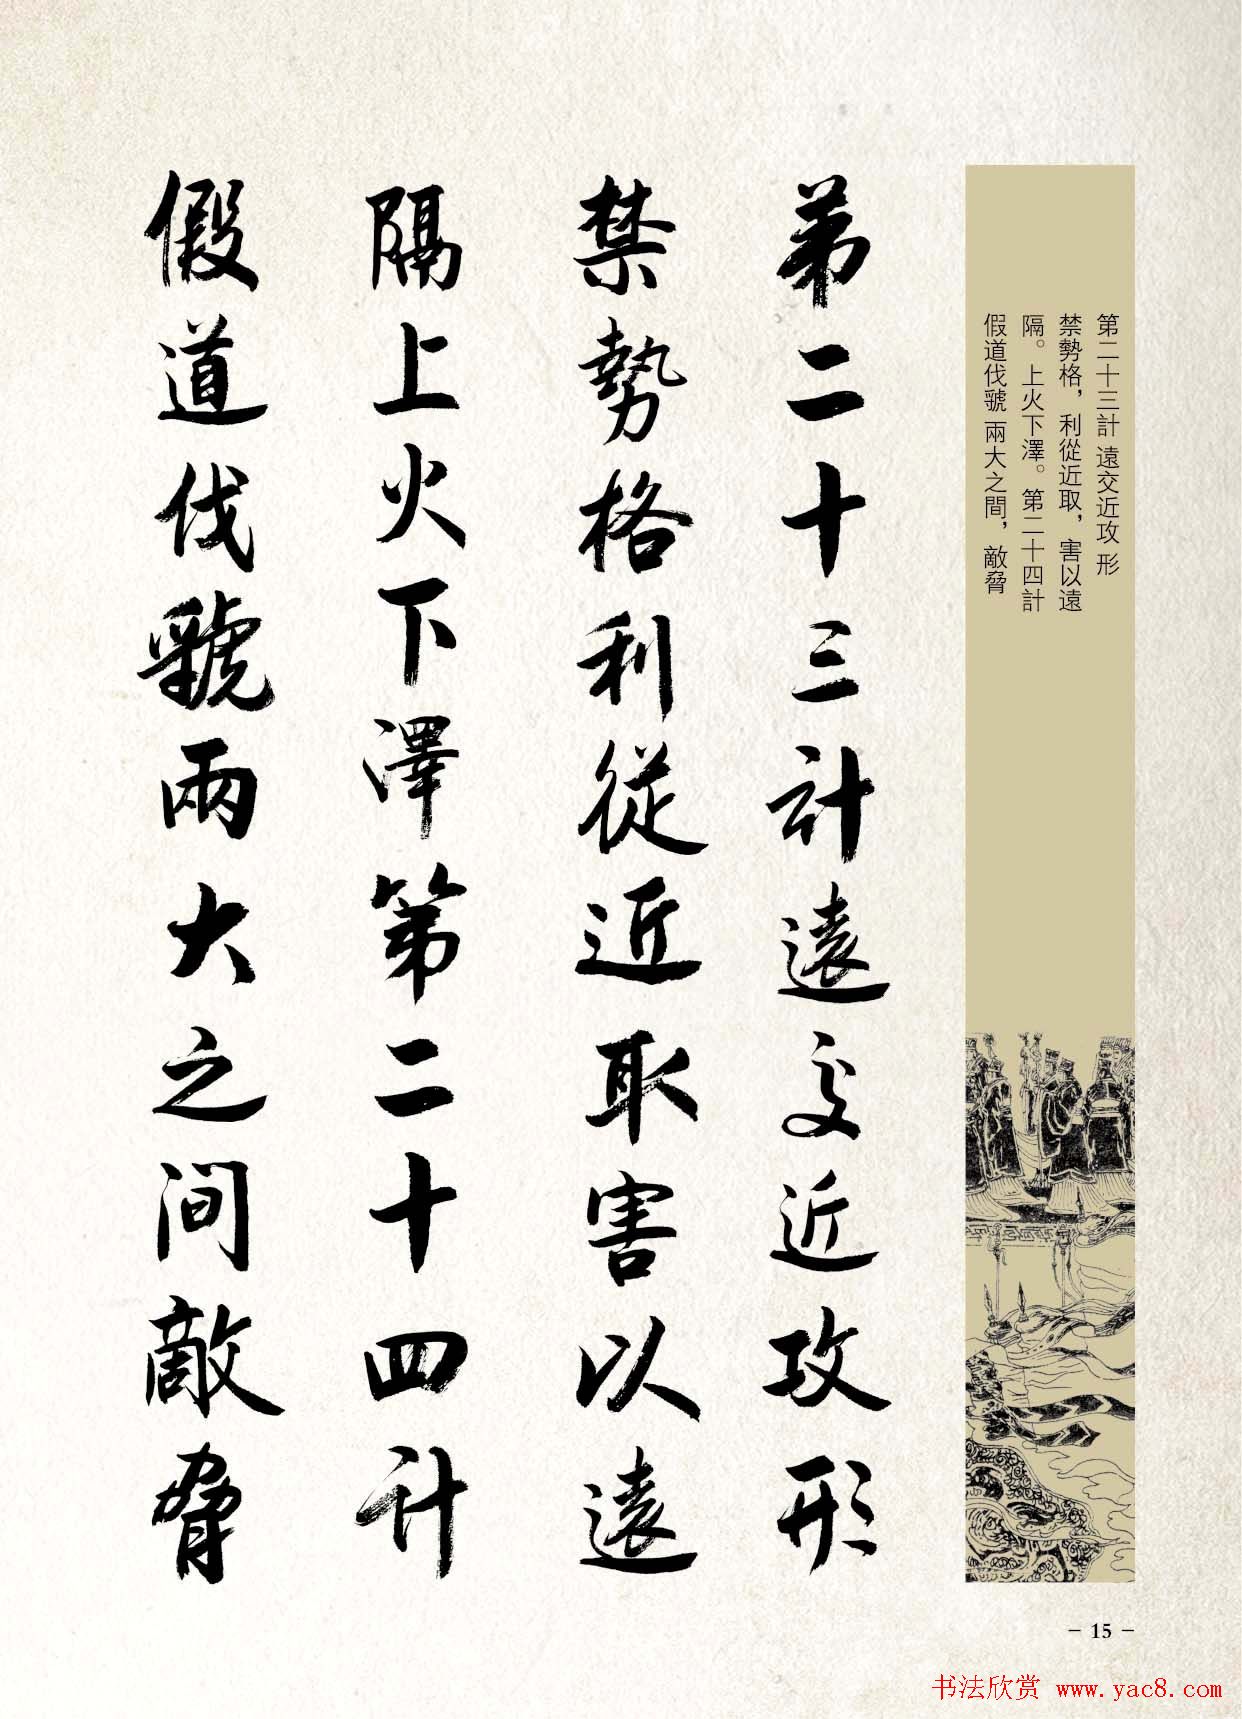 第二十三計 遠交近攻 形
禁勢格，利從近取，害以遠
隔。上火下澤。第二十四計
假道伐虢 兩大之間，敵脅
第二十三計遠交近攻形
禁勢格利從近取害以遠
隔上火下澤第二十四計
假道伐虢兩大之間敵脅
- 15 -
书法欣赏 www.yac8.com